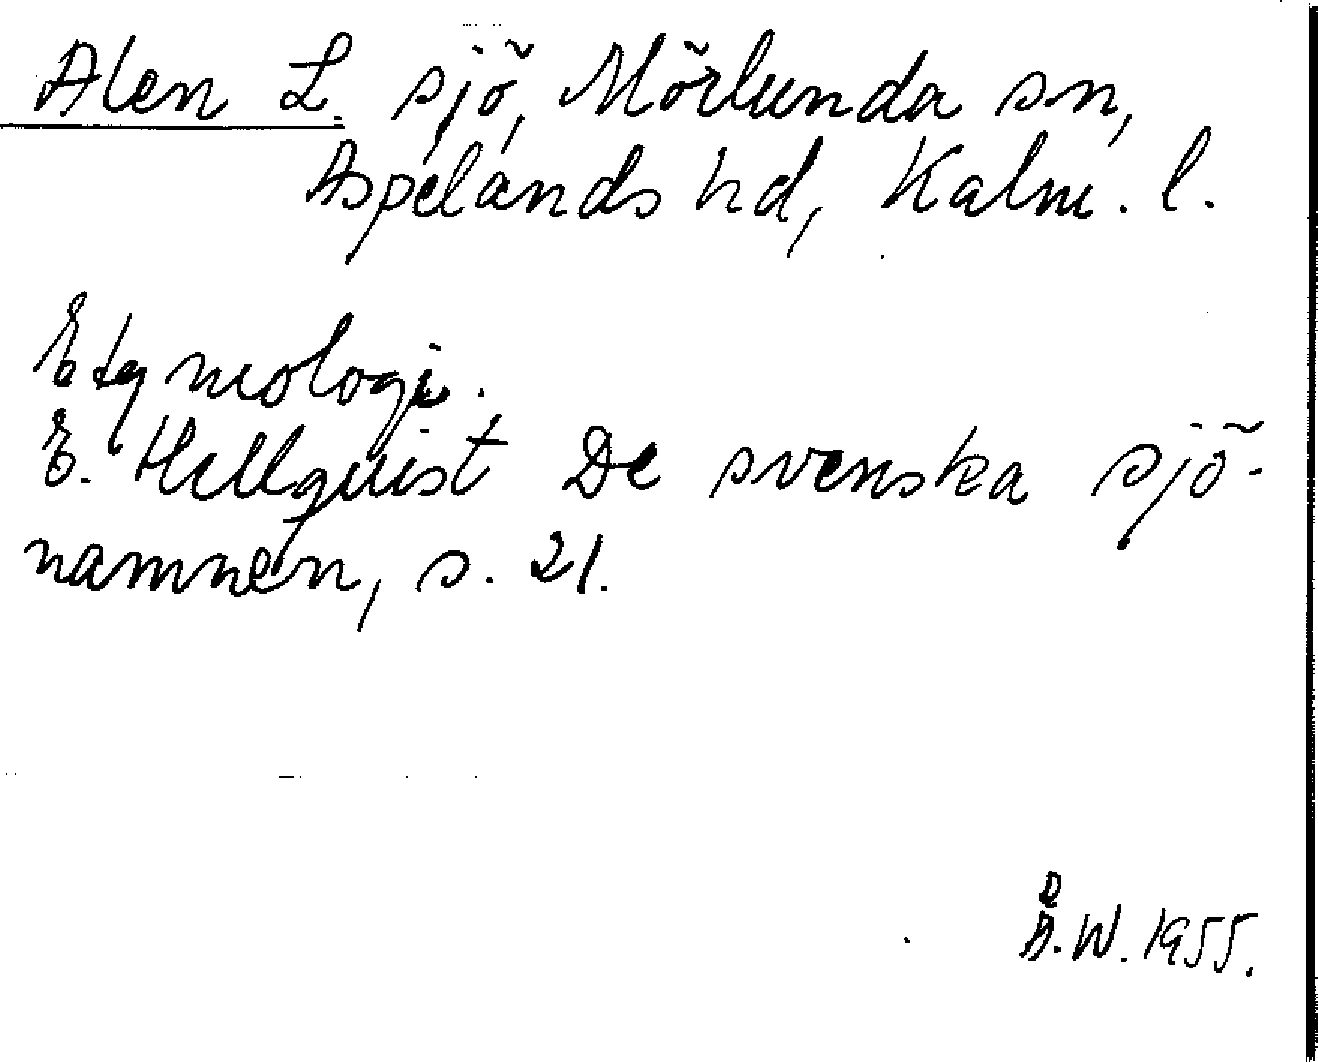 Alen L. sjö, Mörlunda sn,
Aspelands hd, Kalm. l.
Etymologi.
E. Hellquist De svenska sjö-
namnen, s. 21.
Å.W. 1955.